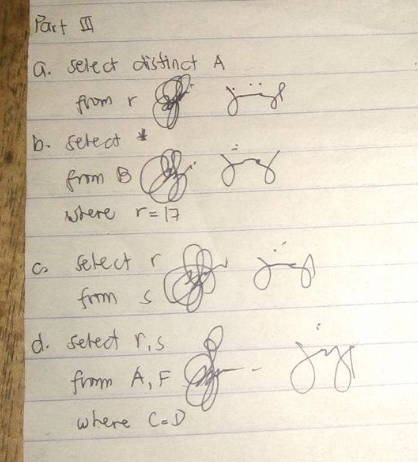 Part III
a. select distinct A
from r
b. select *
from B
where r=17
c. select r
from s
d. select r,s
from A, F
where C=D